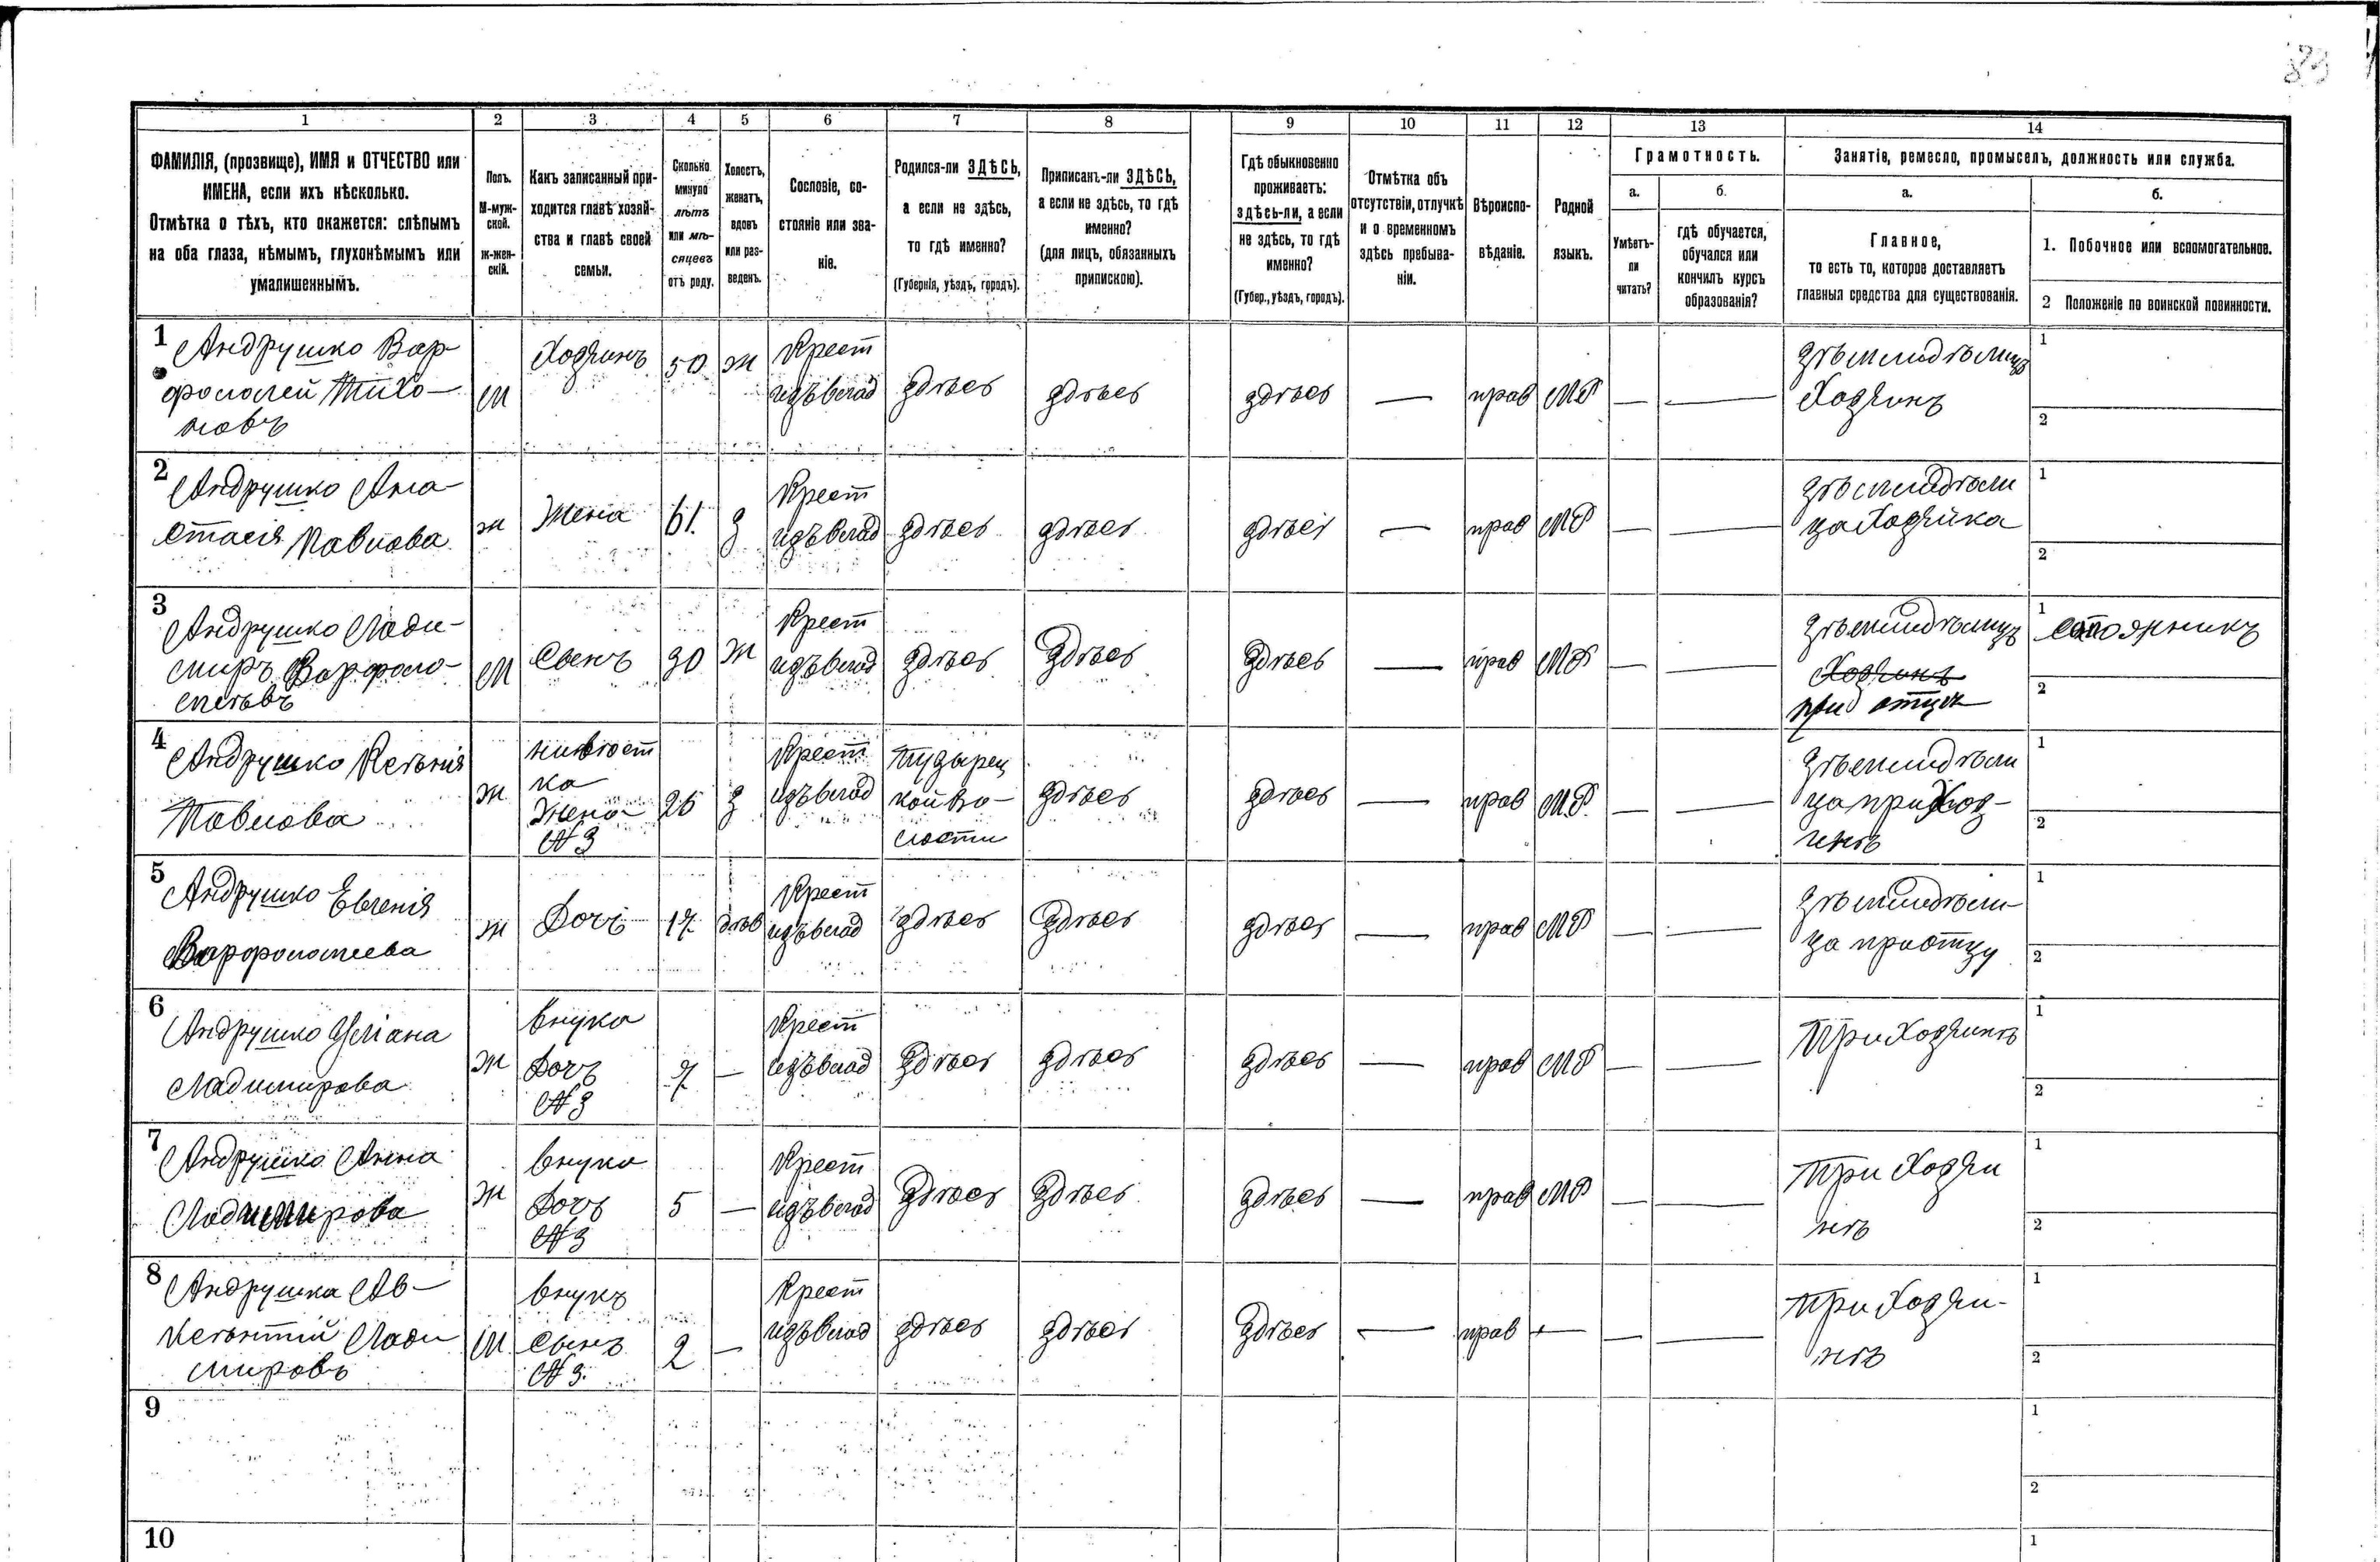 83
1 2 3 4 5 6 7 8 9 10 11 12 13 14
ФАМИЛІЯ, (прозвище), ИМЯ и ОТЧЕСТВО или
ИМЕНА, если ихъ нѣсколько.
Отмѣтка о тѣхъ, кто окажется: слѣпымъ
на оба глаза, нѣмымъ, глухонѣмымъ или
умалишеннымъ.
Полъ.
М-муж-
ской.
ж-жен-
скій.
Какъ записанный при-
ходится главѣ хозяй-
ства и главѣ своей
семьи.
Сколько
минуло
лѣтъ
или мѣ-
сяцевъ
отъ роду.
Холостъ,
женатъ,
вдовъ
или раз-
веденъ.
Сословіе, со-
стояніе или зва-
ніе.
Родился-ли ЗДѢСЬ,
а если не здѣсь,
то гдѣ именно?
(Губернія, уѣздъ, городъ).
Приписанъ-ли ЗДѢСЬ,
а если не здѣсь, то гдѣ
именно?
(для лицъ, обязанныхъ
припискою).
Гдѣ обыкновенно
проживаетъ:
здѣсь-ли, а если
не здѣсь, то гдѣ
именно?
(Губер., уѣздъ, городъ).
Отмѣтка объ
отсутствіи, отлучкѣ
и о временномъ
здѣсь пребыва-
ніи.
Вѣроиспо-
вѣданіе.
Родной
языкъ.
Грамотность.
а.
Умѣетъ-
ли
читать?
б.
гдѣ обучается,
обучался или
кончилъ курсъ
образованія?
Занятіе, ремесло, промыселъ, должность или служба.
а.
Главное,
то есть то, которое доставляетъ
главныя средства для существованія.
б.
1. Побочное или вспомогательное.
2 Положеніе по воинской повинности.
1
Андрушко Вар-
фоломей Тихо-
новъ
м
Хозяинъ
50
ж
Крест
изъ влад
здѣсь
здѣсь
здѣсь
—
прав
МР
—
—
Хозяинъ
1
2
2
Андрушко Ана-
стасія Павлова
ж
Жена
з
Крест
изъ влад
здѣсь
здѣсь
здѣсь
—
прав
МР
—
—
ца Хозяйка
1
2
3
Андрушко Лади-
миръ Варфоло-
меевъ
м
Сынъ
30
ж
Крест
изъ влад
здѣсь
здѣсь
здѣсь
—
прав
МР
—
—
Хозяинъ
при отцѣ
1 столярникъ
2
4
Андрушко
Павлова
ж
невѣст
ка
Жена
№ 3
26
з
Крест
изъ влад
Пузырец
кой во-
лости
здѣсь
здѣсь
—
прав
МР
—
—
ца при Хоз-
1
2
5
Андрушко Евгенія
Варфоломеева
ж
Дочь
17
дѣв
Крест
изъ влад
здѣсь
здѣсь
здѣсь
—
прав
МР
—
—
ца при отцу
1
2
6
Андрушко
Ладимирова
ж
внука
Дочъ
№ 3
7
—
Крест
изъ влад
здѣсь
здѣсь
здѣсь
—
прав
МР
—
—
При Хозяинѣ
1
2
7
Андрушко Анна
Ладимирова
ж
внука
Дочъ
№ 3
5
—
Крест
изъ влад
здѣсь
здѣсь
здѣсь
—
прав
МР
—
—
При Хозяи
нѣ
1
2
8
Андрушка Ав-
Лади
мировъ
м
внукъ
Сынъ
№ 3.
2
—
Крест
изъ влад
здѣсь
здѣсь
здѣсь
—
прав
—
—
—
При Хозяи-
нѣ
1
2
9
1
2
10
1